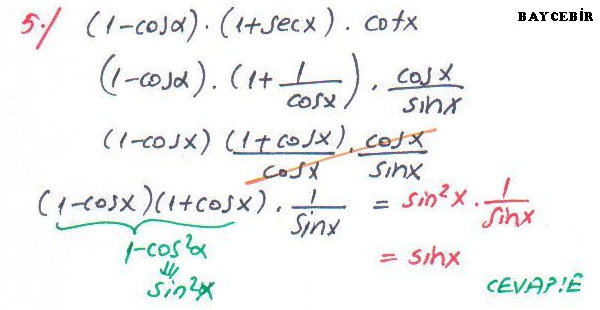 BAYCEBİR
5./ (1-cosα).(1+secx).cotx
(1-cosα).(1+1/cosx).cosx/sinx
(1-cosx)(1+cosx)/cosx.cosx/sinx
(1-cosx)(1+cosx).1/sinx = sin²x.1/sinx
1-cos²α
⇓
sin²x
= sinx
CEVAP:E